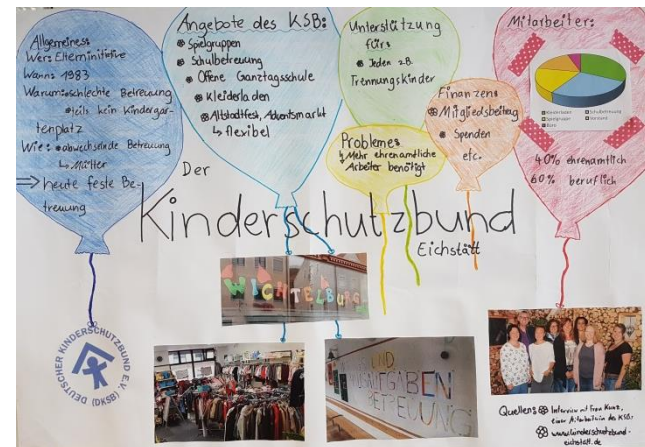 Allgemeines:
Wer: Elterninitiative
Wann: 1983
Warum: schlechte Betreuung
teils kein Kindergar-
tenplatz
Wie: abwechselnde Betreuung
↳ Mütter
⇒ heute feste Be-
treuung
Angebote des KSB:
Spielgruppen
Schulbetreuung
Offene Ganztagsschule
Kleiderladen
Altstadtfest, Adventsmarkt
↳ flexibel
Unterstützung
für:
Jeden z.B.
Trennungskinder
Probleme:
↳ Mehr ehrenamtliche
Arbeiter benötigt
Finanzen:
Mitgliedsbeitrag
Spenden
etc.
Mitarbeiter:
Kleiderladen
Schulbetreuung
Spielgruppen
Vorstand
Büro
40% ehrenamtlich
60% beruflich
Der
Kinderschutzbund
Eichstätt
WICHTELBURG
UND
HAUSAUFGABEN
BETREUUNG
DEUTSCHER KINDERSCHUTZBUND E.V.
(DKSB)
Quellen: Interview mit Frau Kunz,
einer Mitarbeiterin des KSB:
www.kinderschutzbund-
eichstätt.de